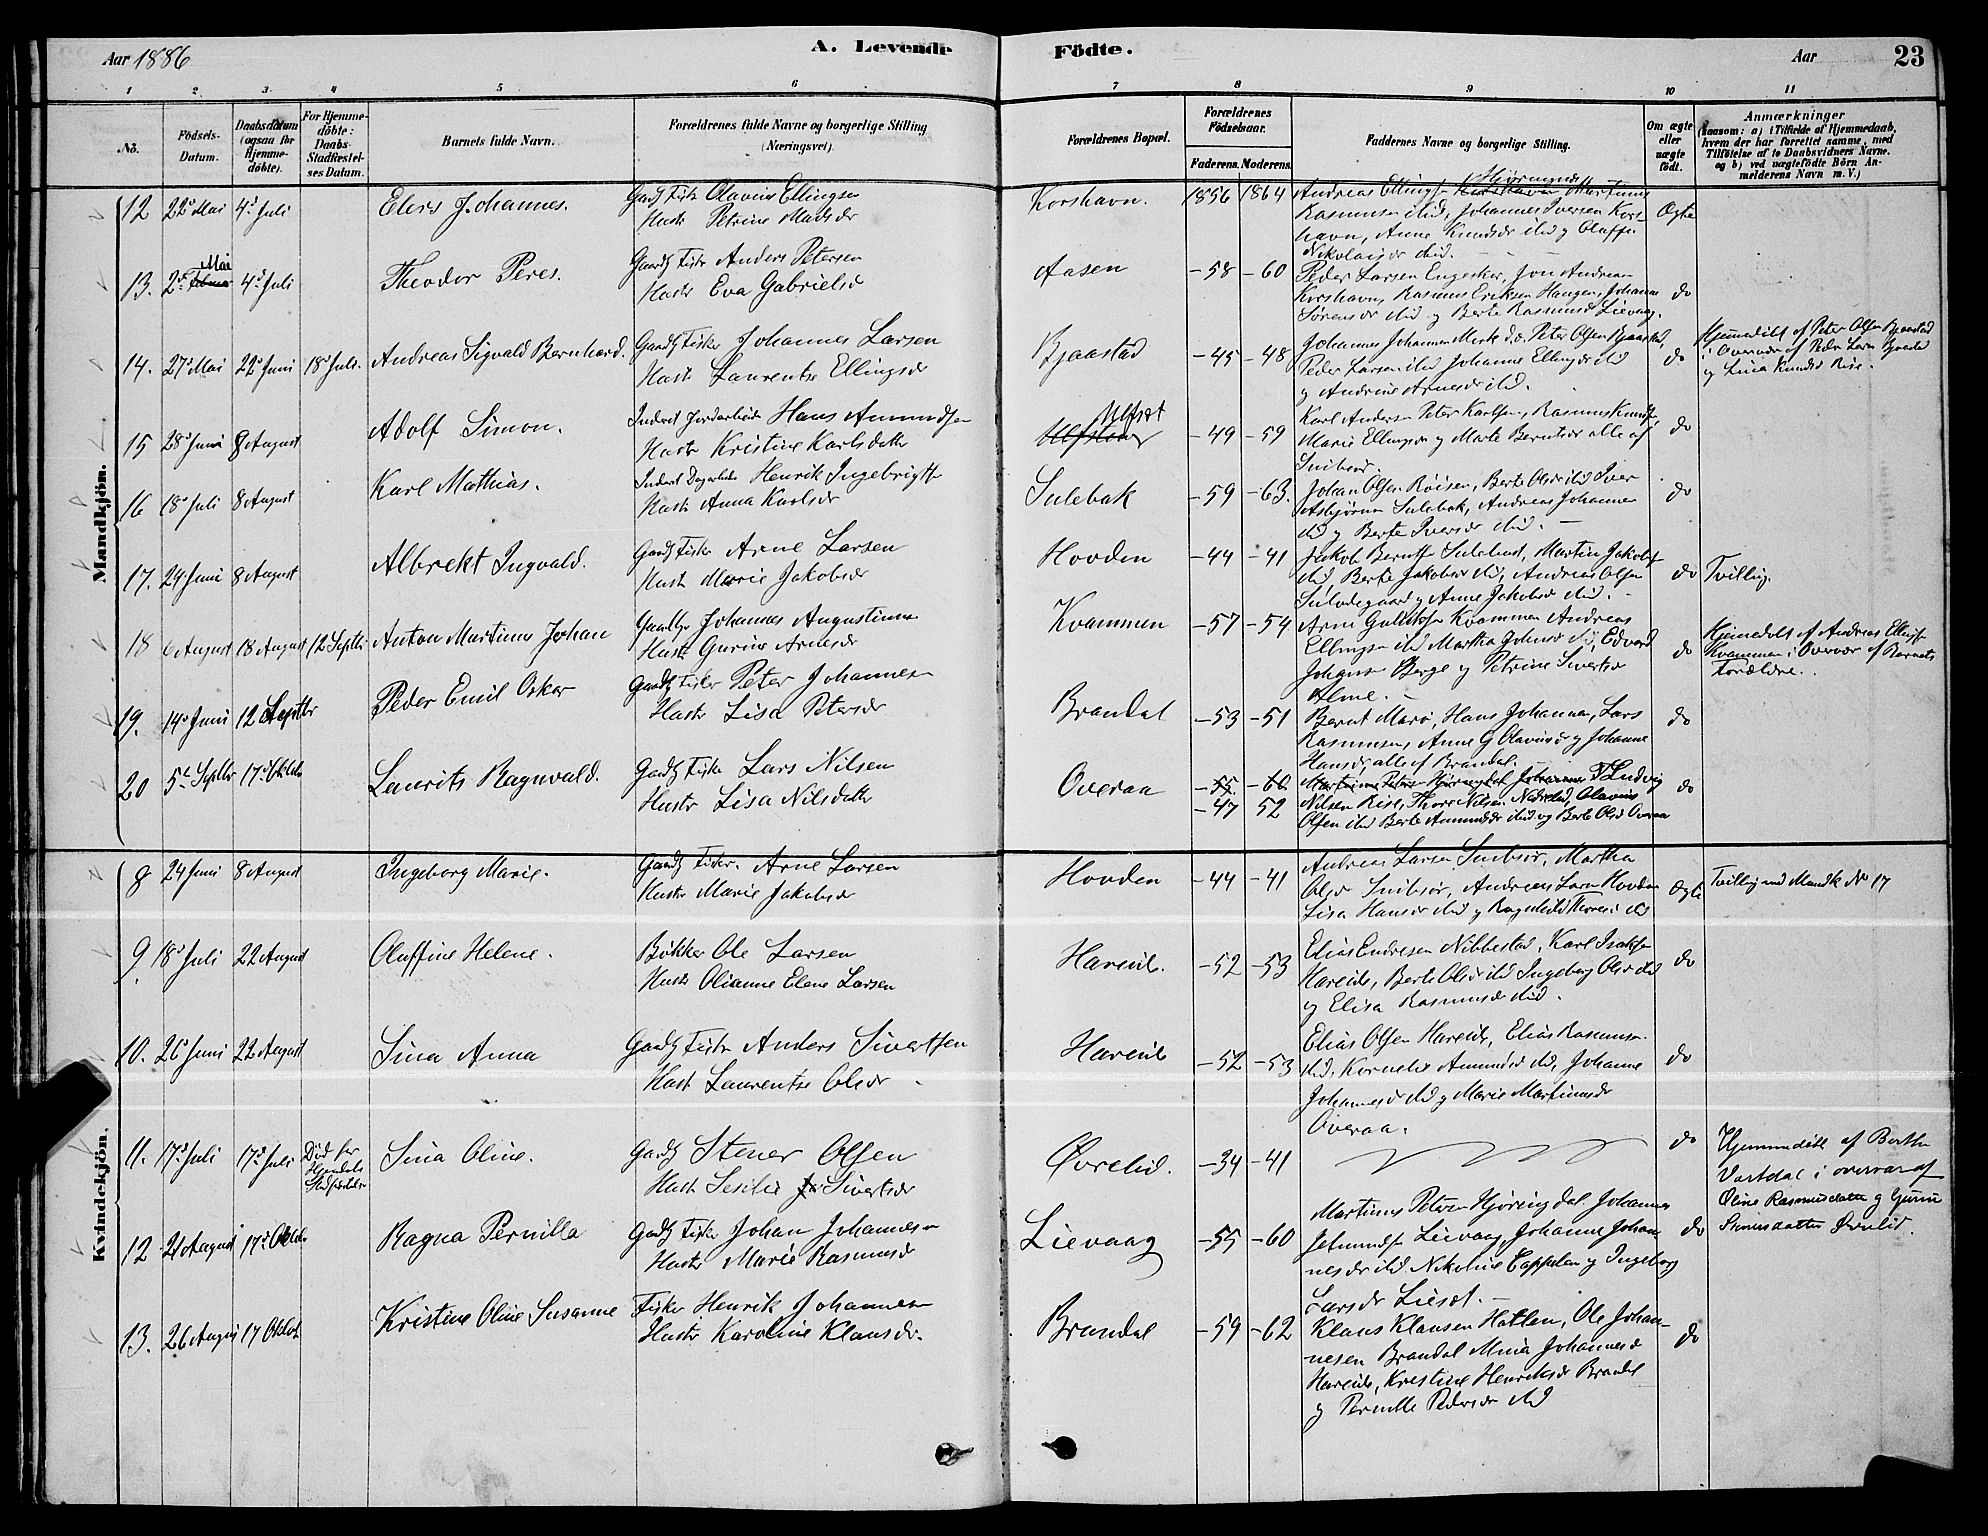 Aar 1886
A. Levende
Födte.
Aar
23
1 2 3 4 5 6 7 8 9 10 11
No.
Födsels-
Datum.
Daabsdatum
(ogsaa for
Hjemme-
döbte).
For Hjemme-
döbte:
Daabs-
Stadfæstel-
ses Datum.
Barnets fulde Navn.
Forældrenes fulde Navne og borgerlige Stilling
(Næringsvei).
Forældrenes Bopæl.
Forældrenes
Födselsaar.
Faderens. Moderens.
Faddernes Navne og borgerlige Stilling.
Om ægte
eller
uægte
födt.
Anmærkninger
(saasom: a) i Tilfælde af Hjemmedaab,
hvem der har forrettet samme, med
Tilföielse af to Daabsvidners Navne.
og b) ved uægtefödte Börn An-
melderens Navn m. V.)
Mandkjön.
12 22d Mai 4d Juli
Elers Johannes.
Gaardb Fisker Olavius Ellingsen
Hustr Petrine Madsdr
Korshavn. 1856 1864
Andreas Ellingsen Hjörungnes Martinus
Rasmussen ibid, Johannes Iversen Kors-
havn, Anne Knudsdr ibid og Oluffine
Nikolaisdr ibid.
Ægte
13. 2d Mai 4d Juli
Theodor Peres.
Gaardb Fisker Anders Petersen
Hustr Eva Gabrielsd
Aasen -58 -60
Peder Larsen Engeskar, Jon Andreas
Korshavn, Rasmus Eriksen Haugen, Johanne
Sörensdr ibid og Berte Rasmusd Lievaag.
do
14. 27d Mai 22d Juni 18d Juli.
Andreas Sigvald Bernhard.
Gaardb Fisker Johannes Larsen
Hustr Laurentse Ellingsdr
Bjaastad -45 -48
Johannes Johannesen Mork d.o. Peter Olsen Bjaastad,
Peder Larsen ibid Johanne Ellingsdr ibid
og Andrine Arnesdr ibid.
do
Hjemmedöbt af Peter Olsen Bjaastad
i Overvær af Peder Larsen Bjaastad
og Lina Knudsd Rise.
15 28d Juni 8 August
Adolf Simon.
Inderst Jordarbeider Hans Amundsen
Hustr Kristine Karlsdatter
Ulfset -49 -59
Karl Andersen Peter Karlsen, Rasmus Knuds
Marie Ellingsen og Marte Berntsdr alle af
Snibsör.
do
16 18d Juli 8 August
Karl Mathias.
Inderst Dagarbeider Henrik Ingebrigts
Hustr Anna Karlsdr
Sulebak -59 -63.
Johan Olsen Röisen, Berte Olsdr ibid Iver
Asbjörnsen Sulebak, Andreas Johannesen
ibid og Berte Iversdr ibid. -
do
17. 24 Juni 8 August
Albrekt Ingvald.
Gaardb Fisker Arne Larsen
Hustr Marie Jakobsdr
Hovden -44 -41
Jakob Bernts Sulebust, Martin Jakobs
ibid, Berte Jakobsdr ibid, Andreas Olsen
Anne Jakobsd ibid.
do Tvilling.
18 6 August 18 August 12 Septbr
Anton Martinus Johan
Gaardbr Johannes Augustinusen
Hustr Gurine Arnesdr
Kvammen -57 -54
Arne Gullaksen Kvammen Andreas
Ellingsen ibid Martha Johnsdr ibid, Edvard
Johansen Berge og Petrine Sivertsdr
Alme. -
do
Hjemmedöbt af Andreas Ellings
Kvammen i Overvær af Barnets
Forældre.
19. 14d Juni 12 Septbr
Peder Emil Oskar
Gaardb Fisker Peter Johannesen
Hustr Lisa Petersdr
Brandal -53 -51
Bernt Marö, Hans Johannesen, Lars
Rasmussen, Anne G Olavusd og Johanne
Hansdr, alle af Brandal.
do
20 5d Septbr 17d Oktbr
Laurits Ragnvald.
Gaardb Fisker Lars Nilsen
Hustr Lisa Nilsdatter
Overaa -55. -60
-47 52
Martinus Petersen Hjöringdal Johannes T Ludvig
Nilsen Rise, Thore Nilsen Nedrelid, Olavius
Olsen ibid Berte Amundsdr ibid og Berte Olsd Overaa
do
Kvindekjön.
8 24 Juni 8 August
Ingeborg Marie.
Gaardb Fisker. Arne Larsen
Hustr Marie Jakobsdr
Hovden -44 -41
Andreas Larsen Snibsör, Martha
Olsdr Snibsör, Andreas Larsen Hovden
Lisa Hansdr ibid og Ragnhild ibid
Ægte
Tvilling med Mandk No 17
9. 18d Juli 22 August
Oluffine Helene.
Bökker Ole Larsen
Hustr Olianne Elene Larsen
Hareide. -52 -53
Elias Endresen Nibbestad, Karl Isaksen
Hareide, Berte Olsdr ibid Ingeborg Olsdr ibid
og Elisa Rasmusdr ibid.
do
10. 26d Juni 22 August
Sina Anna
Gaardb Fisker Anders Sivertsen
Hustr Laurentse Olsdr
Hareide -52 -53
Elias Olsen Hareide, Elias Rasmussen
ibid, Kornelie Amundsd ibid, Johanne
Johannesdr ibid og Marie Martinusdr
Overaa.
do
11. 17d Juli 17d Juli
Död før
Hjemdaabs
Stadfæstelse
Sina Oline.
Gaardb Stener Olsen
Hustr Sesilie Sivertsdr
Øvrelid. -34 -41
do
Hjemmedöbt af Berthe
Vartdal i overvær af
Oline Rasmusdatter og Gurine
Stenersdatter Øvrelid.
12 21 August 17d Oktbr
Ragna Pernilla
Gaardb Fisker Johan Johannesen
Hustr Marie Rasmusd
Lievaag -55 -60
Martinus Petersen Hjöringdal Johannes
Jetmunds Lievaag, Johanne Johan-
nesdr ibid Nikoline Cappelen og Ingeborg
Larsdr Lieset. -
do
13. 26 August 17 Oktob
Kristine Oline Susanne
Fisker Henrik Johannesen
Hustr Karoline Klausdr.
Brandal -59 -62
Klaus Klausen Hatlen, Ole Johan-
nesen Brandal Mina Johannesd
Hareide, Kristine Henriksdr Brandal
og Pernille Pedersdr ibid
do